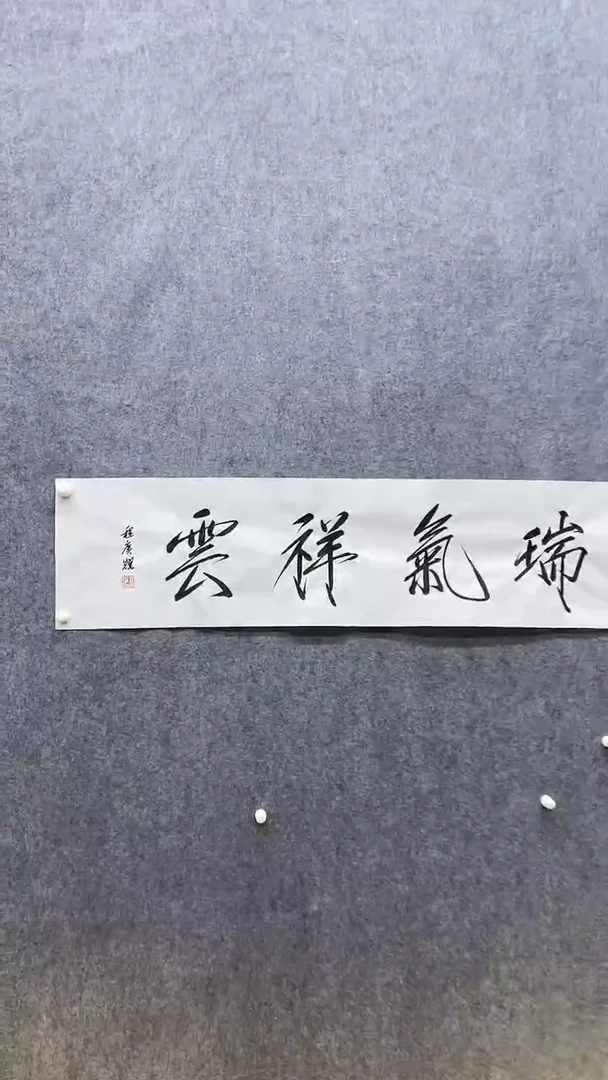 瑞氣祥雲
程廣耀